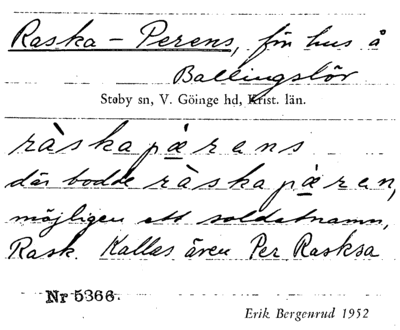 Raska-Perens, fön hus å
Ballingslöv
Støby sn, V. Göinge hd, Krist. län.
ràskapærens
där bodde ràskapæren,
möjligen ett soldatnamn,
Rask. Kallas även Per Rasksa
Nr 5366.
Erik Bergenrud 1952